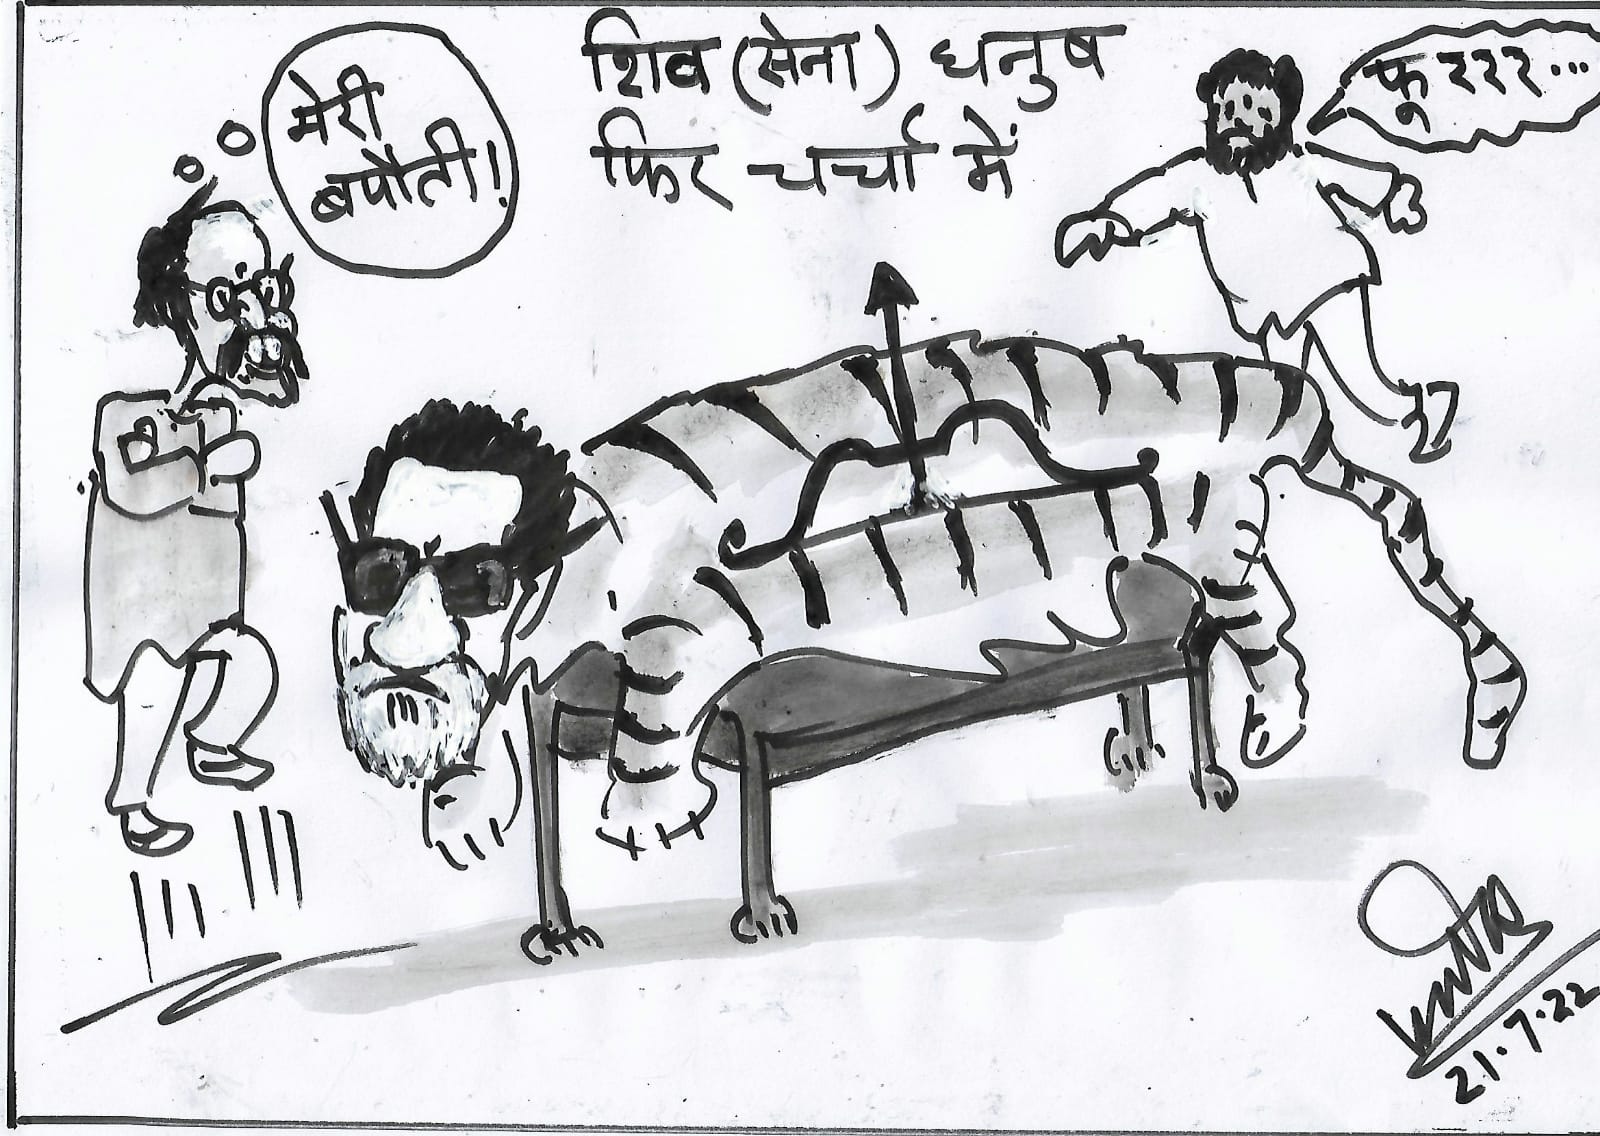 शिव (सेना) धनुष
फिर चर्चा में
मेरी
बपौती!
फूररर...
21.7.22